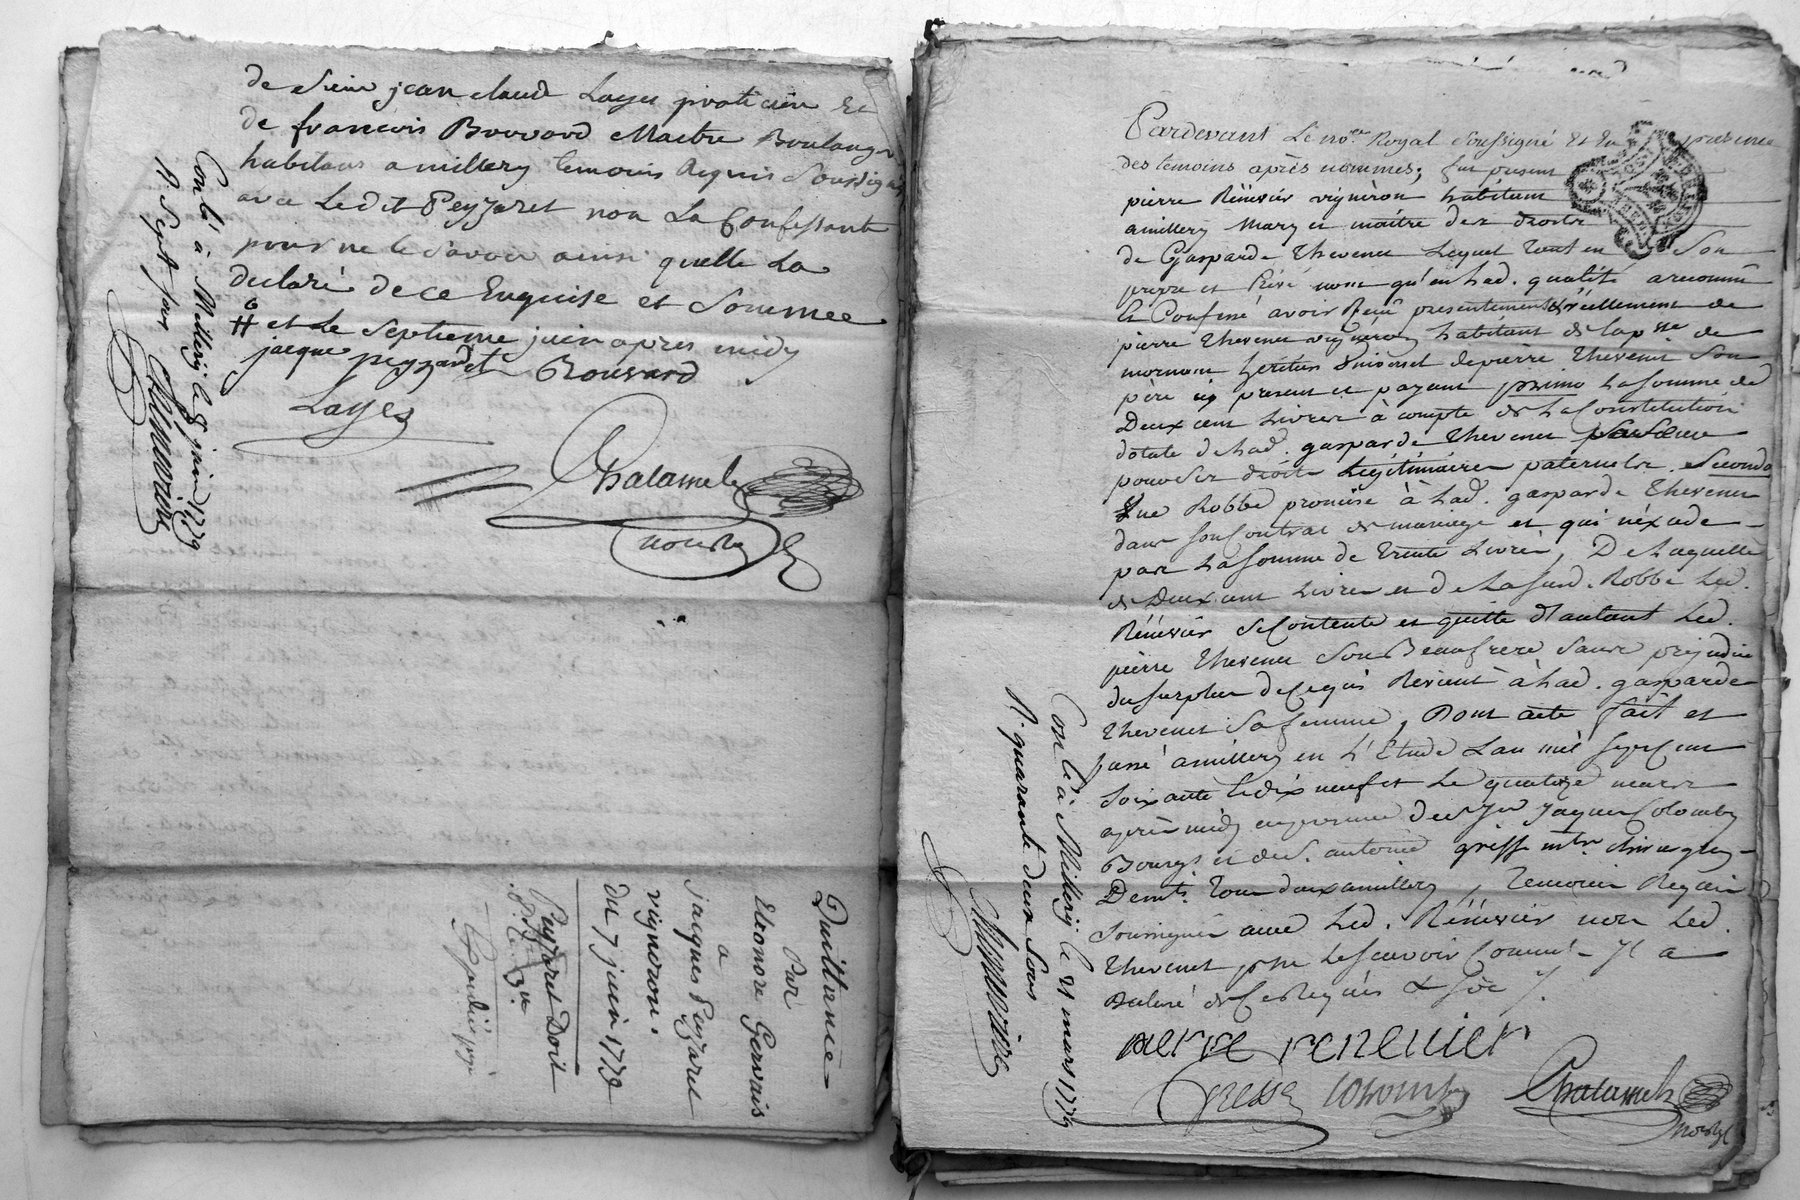 de Sieur jean claude Layes praticien Et
de francois Brovard Maitre Boulanger
habitans a millery temoins Requis Soussignés
avec Ledit Peyzaret non La Confessante
pour ne le Savoir ainsi quelle La
declaré de ce Enquise et Sommee
et Le Septieme juin apres midy
jacque peyzaret Brouvard
Layes
Chalamel
nore
Con.lé à Millery le 8 juin 1779
R. Sept sous
Quittance
Par
Eleonore Gervais
a
jacques Peyzaret
vigneron.
du 7 juin 1779
Peyzaret Doit
Pardevant Le no.re Royal Soussigné et En presence
des temoins après nommes; fut present
pierre Rénévier vigneron habitant
amillery Mary et maître des droits
de Gasparde Thevenet Lequel tant en Son
propre et Privé nom qu'en lad. qualité a reconnu
et Confessé avoir Reçu presentement & réellement de
pierre Thevenet vigneron habitant de la p.sse de
mornant heritier universel de pierre Thevenet Son
père icy present et payant primo La Somme de
Deux cent Livres à compte de La Constitution
dotale de Lad. gasparde Thevenet Sa Sœur
pour Ses droits Légitimaires paternels. Secondo
Une Robbe promise à Lad. gasparde Thevenet
dans Son Contrat de mariage et qui n'éxcede
pas La Somme de trente Livres, De Laquelle
de Deux cent Livres et de La Susd. Robbe Led.
Rénévier Se Contente et quitte d'autant Led.
pierre Thevenet Son Beaufrere Sans prejudice
du Surplus de Ce qui Revient à Lad. gasparde
Thevenet Sa femme, Dont acte fait et
passé amillery en L'Etude L'an mil Sept Cent
Soixante et dix neuf et Le quatorze mars
après midy en presence de S.r Jaques Colomby
Bourgs et de S. antoine griffe m.tre chirurgien
Dem.ts tous deux amillery, temoins Requis
Soussignés avec Led. Rénévier non Led.
Thevenet p.r ne Le Scavoir Comme il a
declaré de Ce Requis
pierre renevier
Colomby
Chalamel
nore
Con.lé à Millery le 21 mars 1779
R. quarante deux Sous